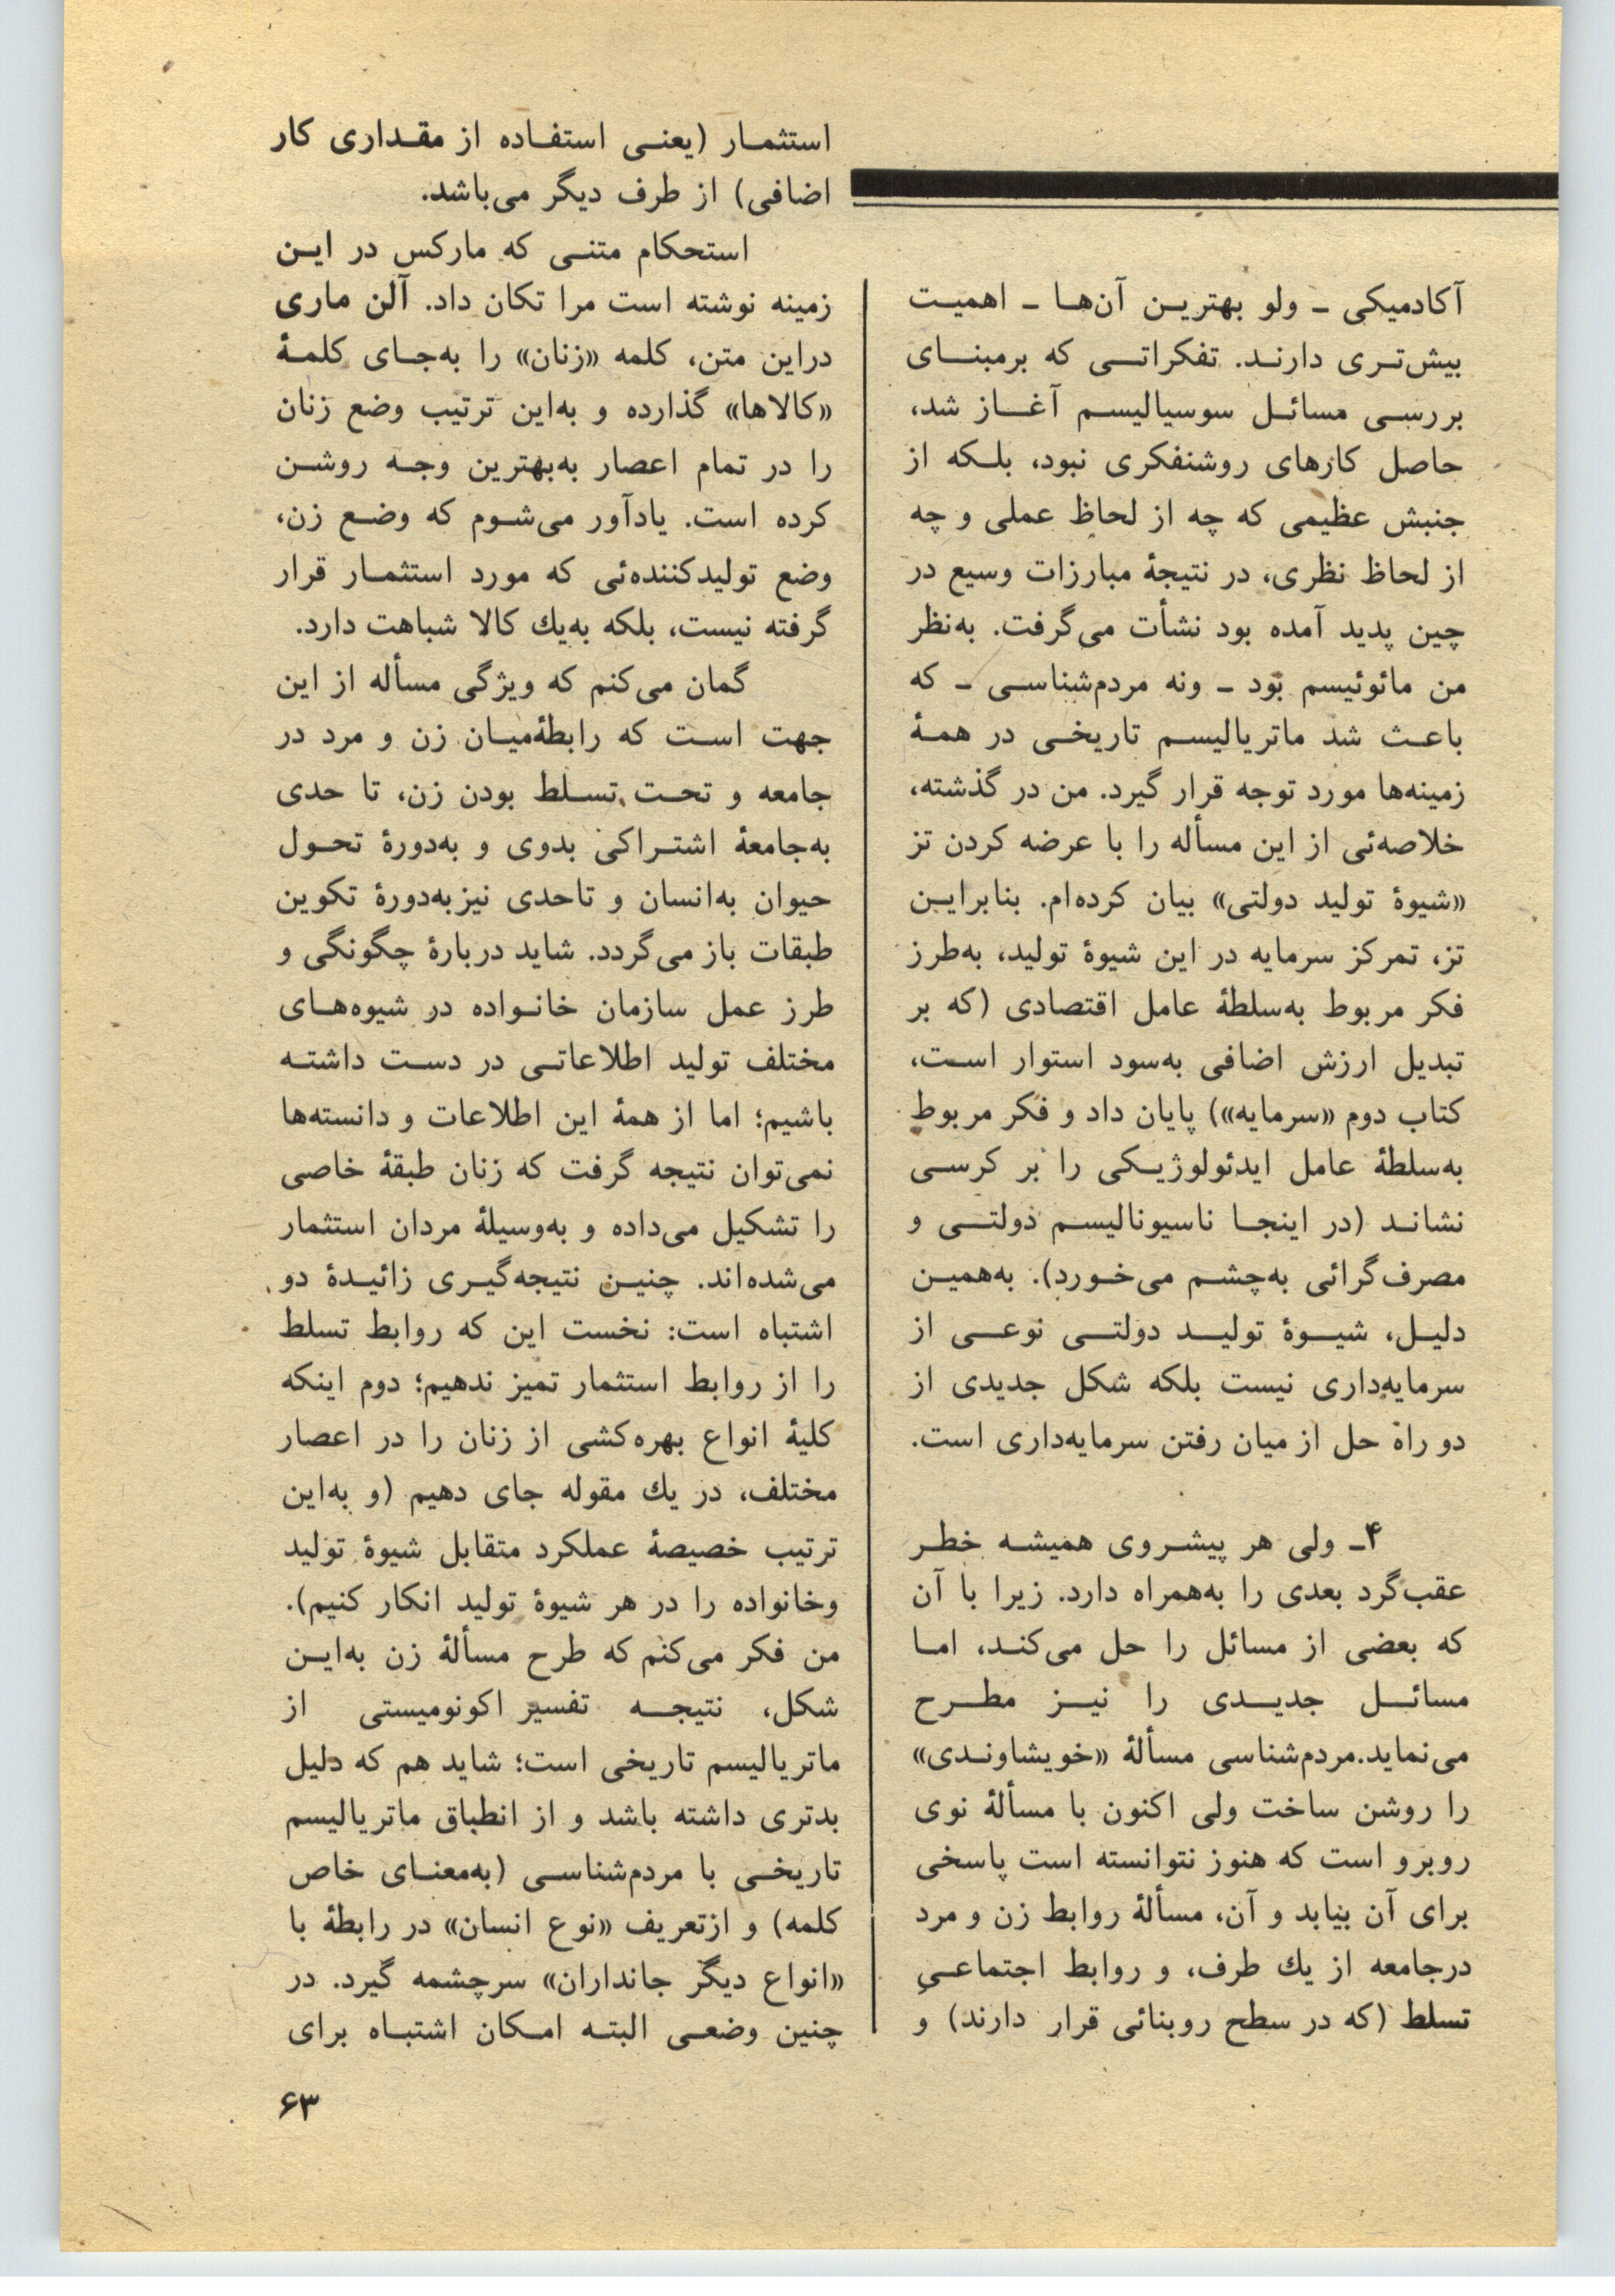 آکادمیکی ـ ولو بهترین آن‌ها ـ اهمیت
بیش‌تری دارند. تفکراتی که برمبنای
بررسی مسائل سوسیالیسم آغاز شد،
حاصل کارهای روشنفکری نبود، بلکه از
جنبش عظیمی که چه از لحاظ عملی و چه
از لحاظ نظری، در نتیجۀ مبارزات وسیع در
چین پدید آمده بود نشأت می‌گرفت. به‌نظر
من مائوئیسم بود ـ ونه مردم‌شناسی ـ که
باعث شد ماتریالیسم تاریخی در همۀ
زمینه‌ها مورد توجه قرار گیرد. من در گذشته،
خلاصه‌ئی از این مسأله را با عرضه کردن تز
«شیوۀ تولید دولتی» بیان کرده‌ام. بنابراین
تز، تمرکز سرمایه در این شیوۀ تولید، به‌طرز
فکر مربوط به‌سلطۀ عامل اقتصادی (که بر
تبدیل ارزش اضافی به‌سود استوار است،
کتاب دوم «سرمایه») پایان داد و فکر مربوط
به‌سلطۀ عامل ایدئولوژیکی را بر کرسی
نشاند (در اینجا ناسیونالیسم دولتی و
مصرف‌گرائی به‌چشم می‌خورد). به‌همین
دلیل، شیوۀ تولید دولتی نوعی از
سرمایه‌داری نیست بلکه شکل جدیدی از
دو راه حل از میان رفتن سرمایه‌داری است.
۴ـ ولی هر پیشروی همیشه خطر
عقب‌گرد بعدی را به‌همراه دارد. زیرا با آن
که بعضی از مسائل را حل می‌کند، اما
مسائل جدیدی را نیز مطرح
می‌نماید.مردم‌شناسی مسألۀ «خویشاوندی»
را روشن ساخت ولی اکنون با مسألۀ نوی
روبرو است که هنوز نتوانسته است پاسخی
برای آن بیابد و آن، مسألۀ روابط زن و مرد
درجامعه از یك طرف، و روابط اجتماعیِ
تسلط (که در سطح روبنائی قرار دارند) و
استثمار (یعنی استفاده از مقداری کار
اضافی) از طرف دیگر می‌باشد.
استحکام متنی که مارکس در این
زمینه نوشته است مرا تکان داد. آلن ماری
دراین متن، کلمه «زنان» را به‌جای کلمۀ
«کالاها» گذارده و به‌این ترتیب وضع زنان
را در تمام اعصار به‌بهترین وجه روشن
کرده است. یادآور می‌شوم که وضع زن،
وضع تولیدکننده‌ئی که مورد استثمار قرار
گرفته نیست، بلکه به‌یك کالا شباهت دارد.
گمان می‌کنم که ویژگی مسأله از این
جهت است که رابطۀمیان زن و مرد در
جامعه و تحت تسلط بودن زن، تا حدی
به‌جامعۀ اشتراکی بدوی و به‌دورۀ تحول
حیوان به‌انسان و تاحدی نیزبه‌دورۀ تکوین
طبقات باز می‌گردد. شاید دربارۀ چگونگی و
طرز عمل سازمان خانواده در شیوه‌های
مختلف تولید اطلاعاتی در دست داشته
باشیم؛ اما از همۀ این اطلاعات و دانسته‌ها
نمی‌توان نتیجه گرفت که زنان طبقۀ خاصی
را تشکیل می‌داده و به‌وسیلۀ مردان استثمار
می‌شده‌اند. چنین نتیجه‌گیری زائیدۀ دو
اشتباه است: نخست این که روابط تسلط
را از روابط استثمار تمیز ندهیم؛ دوم اینکه
کلیۀ انواع بهره‌کشی از زنان را در اعصار
مختلف، در یك مقوله جای دهیم (و به‌این
ترتیب خصیصۀ عملکرد متقابل شیوۀ تولید
وخانواده را در هر شیوۀ تولید انکار کنیم).
من فکر می‌کنم که طرح مسألۀ زن به‌این
شکل، نتیجه تفسیر اکونومیستی از
ماتریالیسم تاریخی است؛ شاید هم که دلیل
بدتری داشته باشد و از انطباق ماتریالیسم
تاریخی با مردم‌شناسی (به‌معنای خاص
کلمه) و ازتعریف «نوع انسان» در رابطۀ با
«انواع دیگر جانداران» سرچشمه گیرد. در
چنین وضعی البته امکان اشتباه برای
۶۳